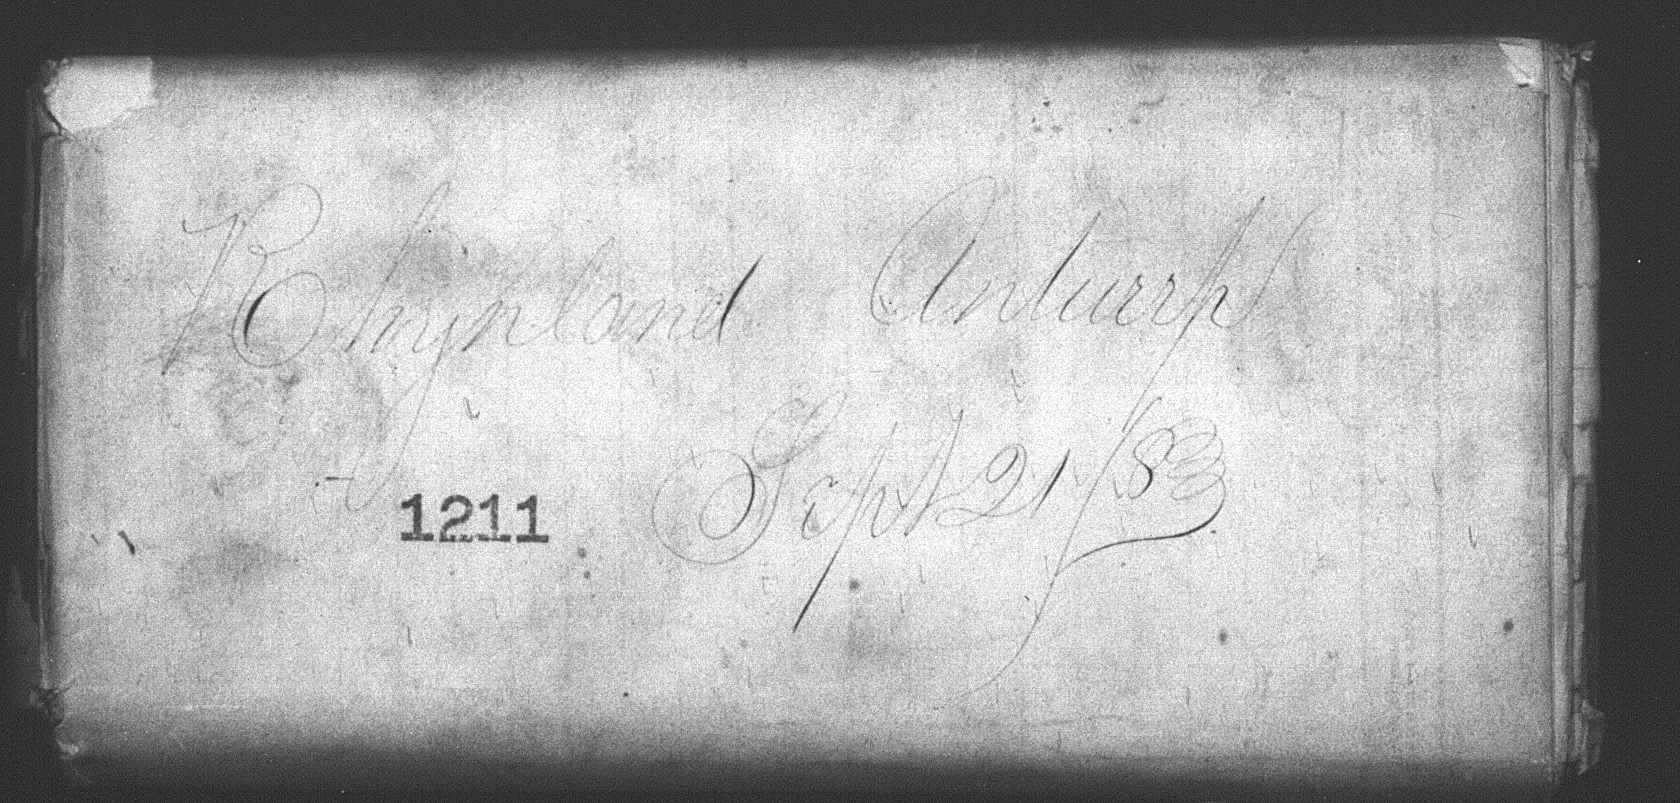 Rhynland Anturrp
Sept 21/83
1211